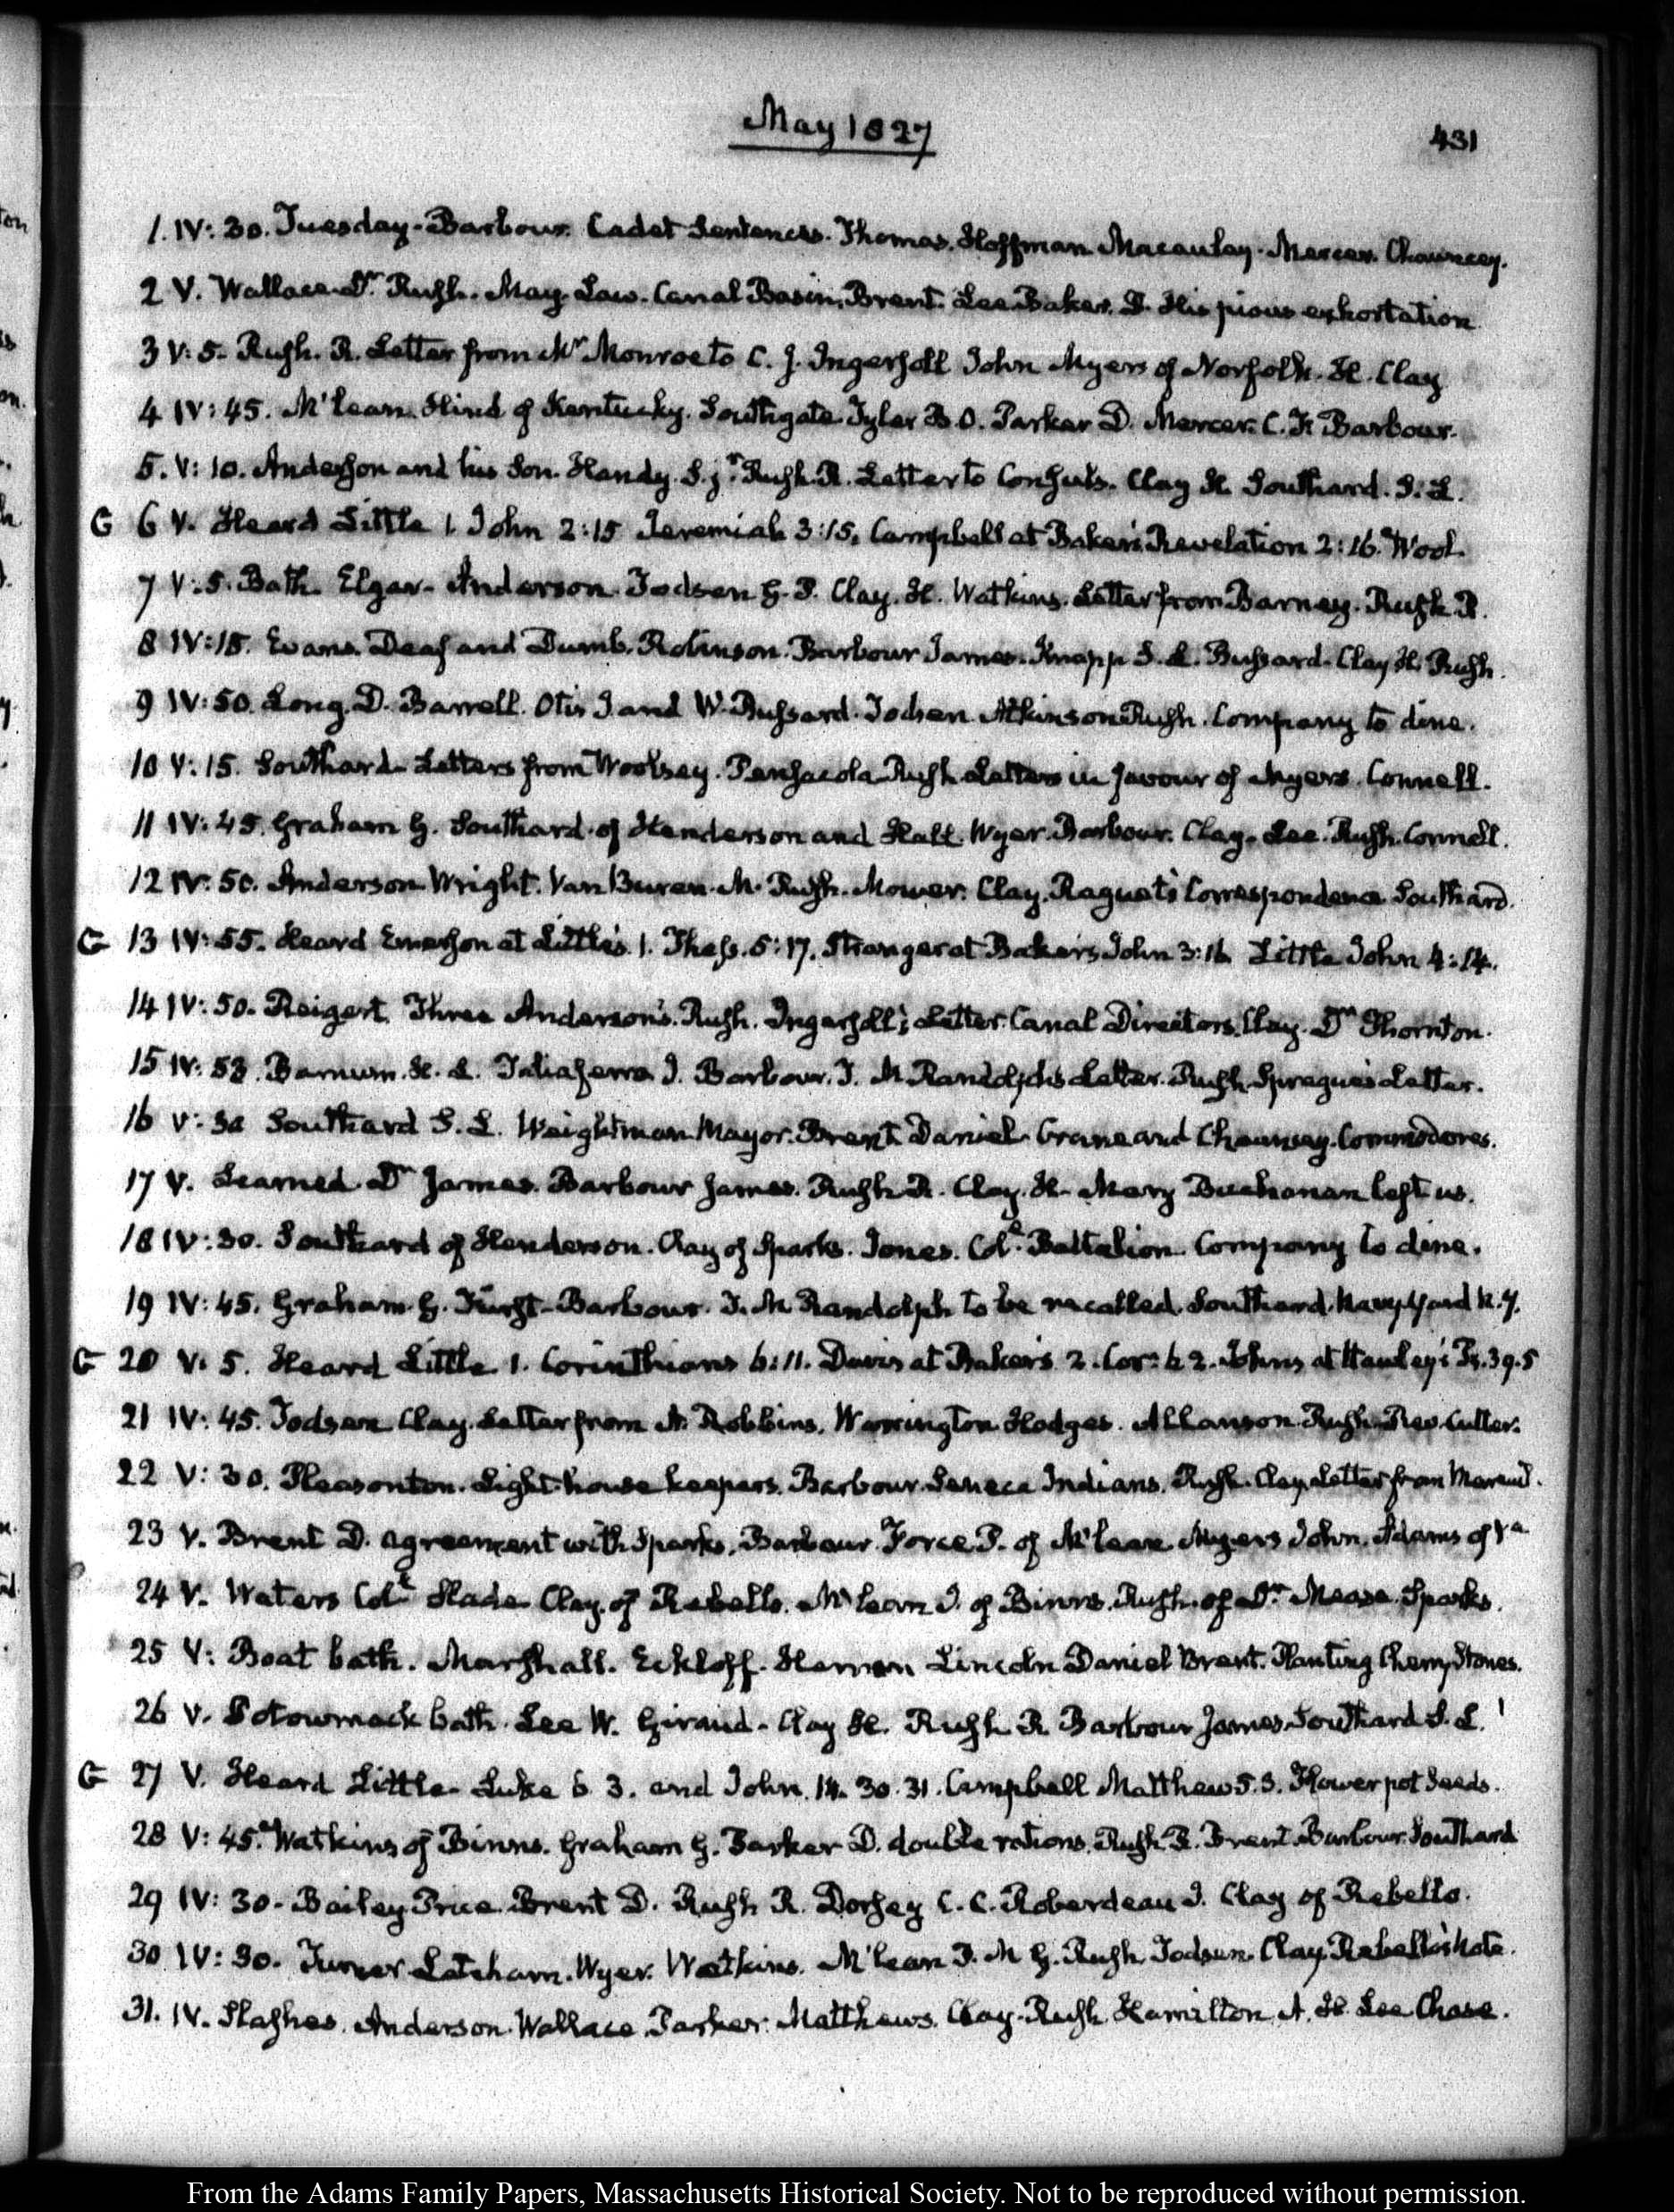 May 1827
431
1. IV: 30. Tuesday. Barbour. Cadet Sentences. Thomas. Hoffman. Macaulay. Mercer. Chauncey.
2 V. Wallace. Dr. Rush. May. Law. Canal Basin, Brent. Lee. Baker. D. His pious exhortation
3 V: 5. Rush. R. Letter from Mr Monroe to C. J. Ingersoll John Myers of Norfolk. H. Clay
4 IV: 45. M'lean. Hind of Kentucky. Southgate. Tyler B. O. Parker D. Mercer. C. F. Barbour.
5. V: 10. Anderson and his Son. Handy. S. jr. Rush. R. Letter to Consuls. Clay H. Southard. S. L.
G 6 V. Heard Little 1 John 2:15 Jeremiah 3:15. Campbell at Baker's Revelation 2:16. Wool.
7 V: 5. Bath. Elgar. Anderson. Todsen G. P. Clay. H. Watkins. Letter from Barney. Rush R.
8 IV: 15. Evans. Deaf and Dumb. Robinson. Barbour James. Knapp S. L. Bussard. Clay H. Rush.
9 IV: 50. Long. D. Barrell. Otis J and W. Bussard. Todsen Atkinson Rush. Company to dine.
10 V: 15. Southard. Letters from Woolsey. Pensacola. Rush Letters in favour of Myers. Connell.
11 IV: 45. Graham G. Southard. of Henderson and Hall. Wyer. Barbour. Clay. Lee. Rush. Connell.
12 IV: 50. Anderson. Wright. Van Buren. M. Rush. Mower. Clay. Raguet's Correspondence Southard.
G 13 IV: 55. Heard Emerson at Little's. 1. Thess. 5:17. Stranger at Baker's John 3:16 Little John 4:14.
14 IV: 50. Reigert. Three Anderson's. Rush. Ingersoll's Letter. Canal Directors. Clay. Dr Thornton.
15 IV: 53. Barnum. H. L. Taliaferro J. Barbour. T. M Randolph's Letter. Rush Sprague's Letter.
16 V: 30 Southard S. L. Weightman Mayor. Brent Daniel. Crane and Chauncey. Commodores.
17 V. Learned. Dr James. Barbour James. Rush R. Clay. H. Mary Buchanan left us.
18 IV: 30. Southard of Henderson. Clay of Sparks. Jones. Coll. Battalion. Company to dine.
19 IV: 45. Graham. G. Barbour. T. M Randolph to be recalled. Southard. Navy Yard N.Y.
G 20 V: 5. Heard Little 1. Corinthians 6:11. Davis at Baker's 2. Cor: 6 2. Johns at Hawley's Ps. 39.5
21 IV: 45. Todsen. Clay. Letter from A. Robbins. Warrington. Hodges. Allanson Rush. Rev. Cutler.
22 V: 30. Pleasonton. Light-house keepers. Barbour. Seneca Indians. Rush. Clay. Letter from Mareuil.
23 V. Brent D. agreement with Sparks. Barbour. Force P. of M'lean Myers John. Adams of Va
24 V. Waters Coll Slade Clay. of Rebello. M'lean J. of Binns. Rush. of Dr. Mease. Sparks.
25 V: Boat bath. Marshall. Eckloff. Lincoln Daniel Brent. Planting Cherry Stones.
26 V. Potowmack bath. Lee W. Giraud. Clay H. Rush R. Barbour James. Southard S. L.
G 27 V. Heard Little. Luke 5 3. and John. 14. 30. 31. Campbell Matthew 5. 3. Flower pot Seeds.
28 V: 45. Watkins of Binns. Graham G. Parker D. double rations. Rush R. Brent. Barbour. Southard
29 IV: 30. Bailey. Brent D. Rush R. Dorsey C. C. Roberdeau J. Clay of Rebello.
30 IV: 30. Turner Latcham. Wyer. Watkins. M'lean J. M G. Rush. Todsen. Clay. Rebello's Note.
31. IV. Anderson. Wallace. Parker. Matthews. Clay. Rush. Hamilton, A. H. Lee Chase.
From the Adams Family Papers, Massachusetts Historical Society. Not to be reproduced without permission.